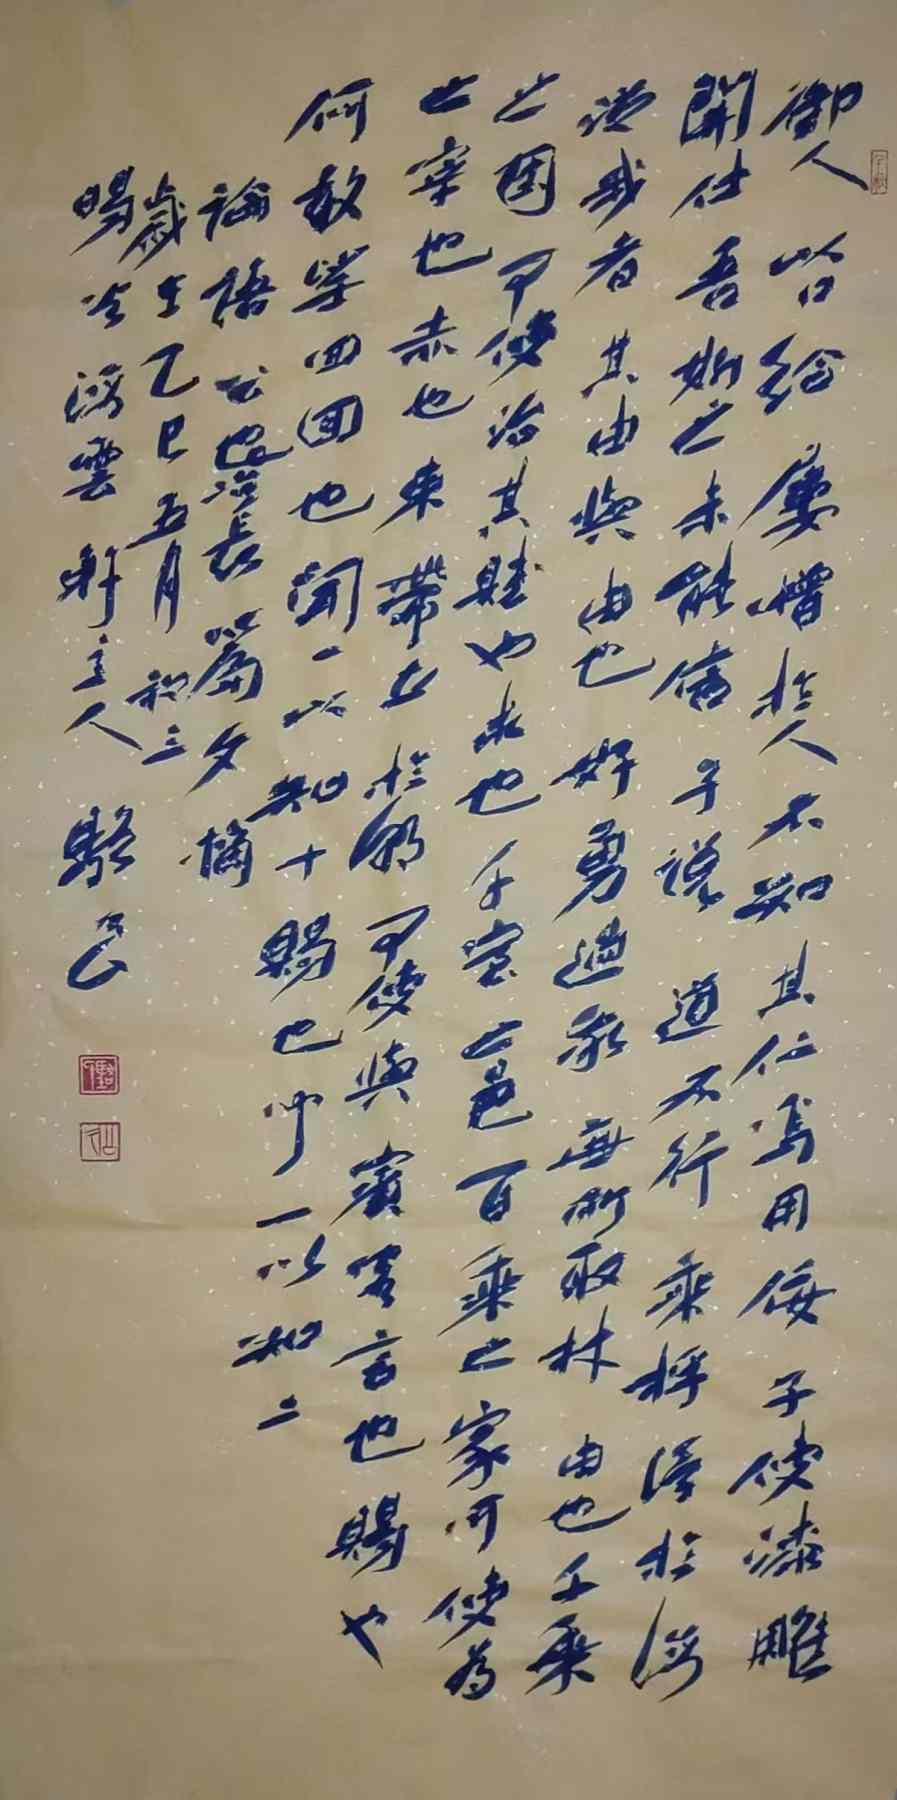 御人以口給屢憎於人不知其仁焉用佞子使漆雕
開仕吾斯之未能信子說道不行乘桴浮於海
從我者其由與由也好勇過我無所取材由也千乘
之國可使治其賦也求也千室之邑百乘之家可使為
之宰也赤也束帶立於朝可使與賓客言也賜也
何敢望回回也聞一以知十賜也聞一以知二
論語公冶長篇文摘
歲在乙巳五月初三
海雲軒主人